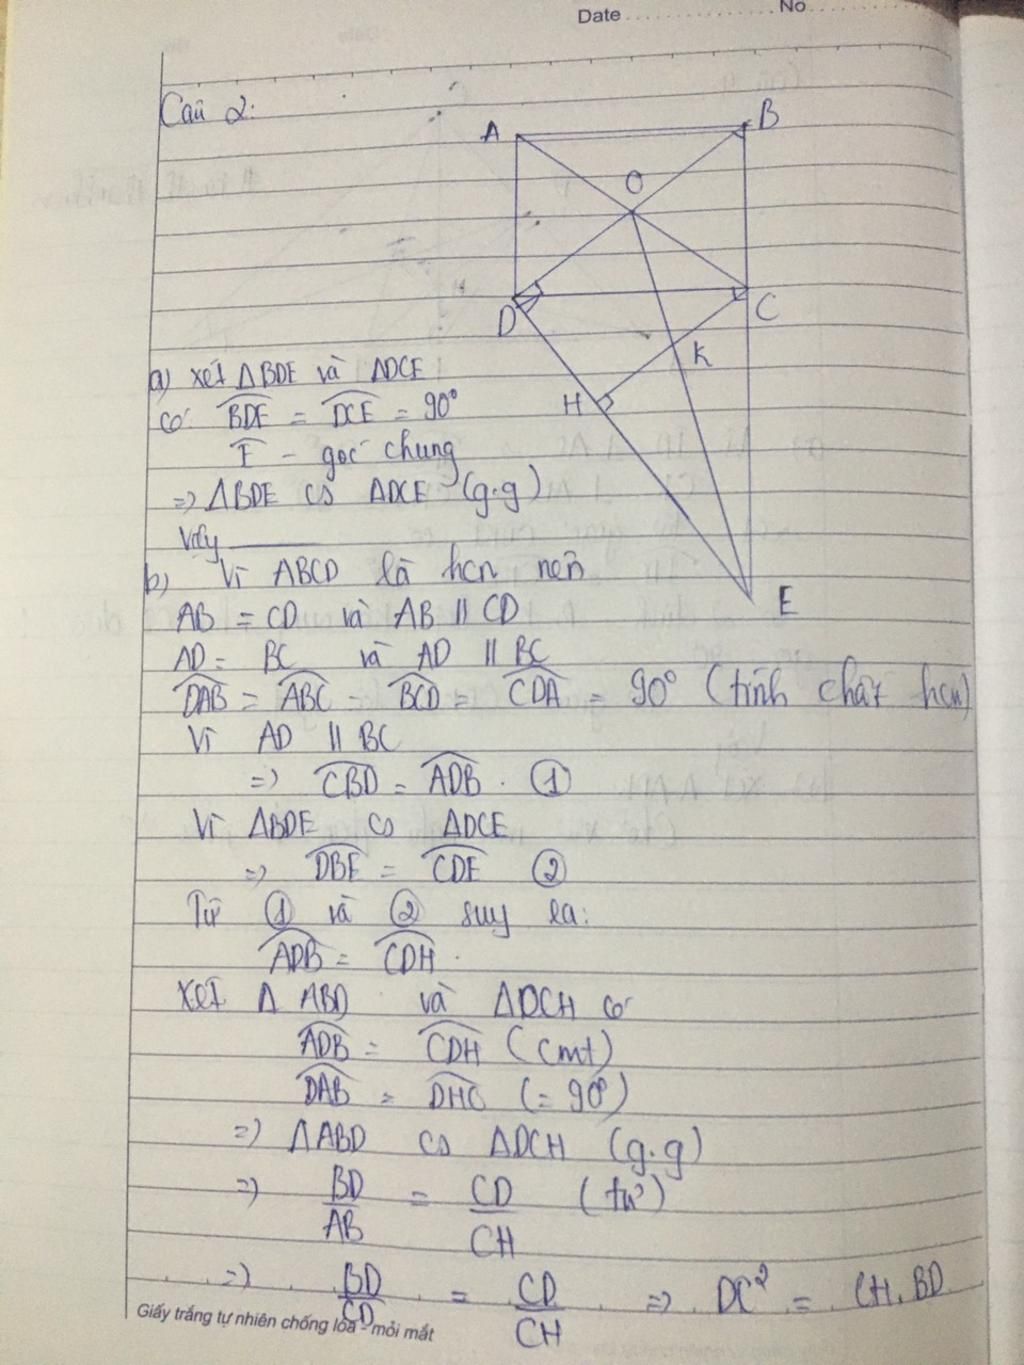 Date No
Câu 2:
A
B
O
D
C
K
H
E
a) Xét ΔBDE và ΔDCE
có BDE = DCE = 90°
E - góc chung
=> ΔBDE ∽ ΔDCE (g.g)
Vậy
b) Vì ABCD là hcn nên
AB = CD và AB // CD
AD = BC và AD // BC
DAB = ABC = BCD = CDA = 90° (tính chất hcn)
Vì AD // BC
=> CBD = ADB . ①
Vì ΔBDE ∽ ΔDCE
=> DBE = CDE ②
Từ ① và ② suy ra:
ADB = CDH.
Xét Δ ABD và ΔDCH có
ADB = CDH (cmt)
DAB = DHC (= 90°)
=> ΔABD ∽ ΔDCH (g.g)
=> BD/AB = CD/CH (tứ)
=> BD/CD = CD/CH => DC² = CH.BD
Giấy trắng tự nhiên chống lóa - mỏi mắt